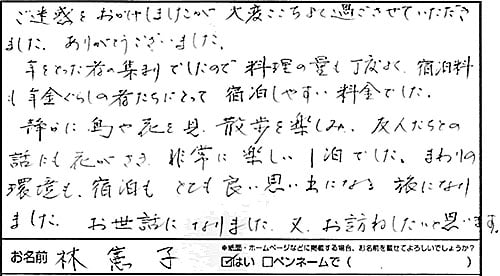 ご迷惑をおかけしましたが大変ここちよく過ごさせていただき
ました。ありがとうございました。
年をとった者の集まりでしたので料理の量も丁度よく、宿泊料
も年金ぐらしの者たちにとって宿泊しやすい料金でした。
静かに鳥や花を見、散歩を楽しみ、友人たちとの
話にも花がさき、非常に楽しい1泊でした。まわりの
環境も、宿泊もとても良い思い出になる旅になり
ました。お世話になりました。又、お訪ねしたいと思います。
※紙面・ホームページなどに掲載する場合、お名前を載せてよろしいでしょうか?
お名前 林 憲子 ☑はい □ペンネームで( )